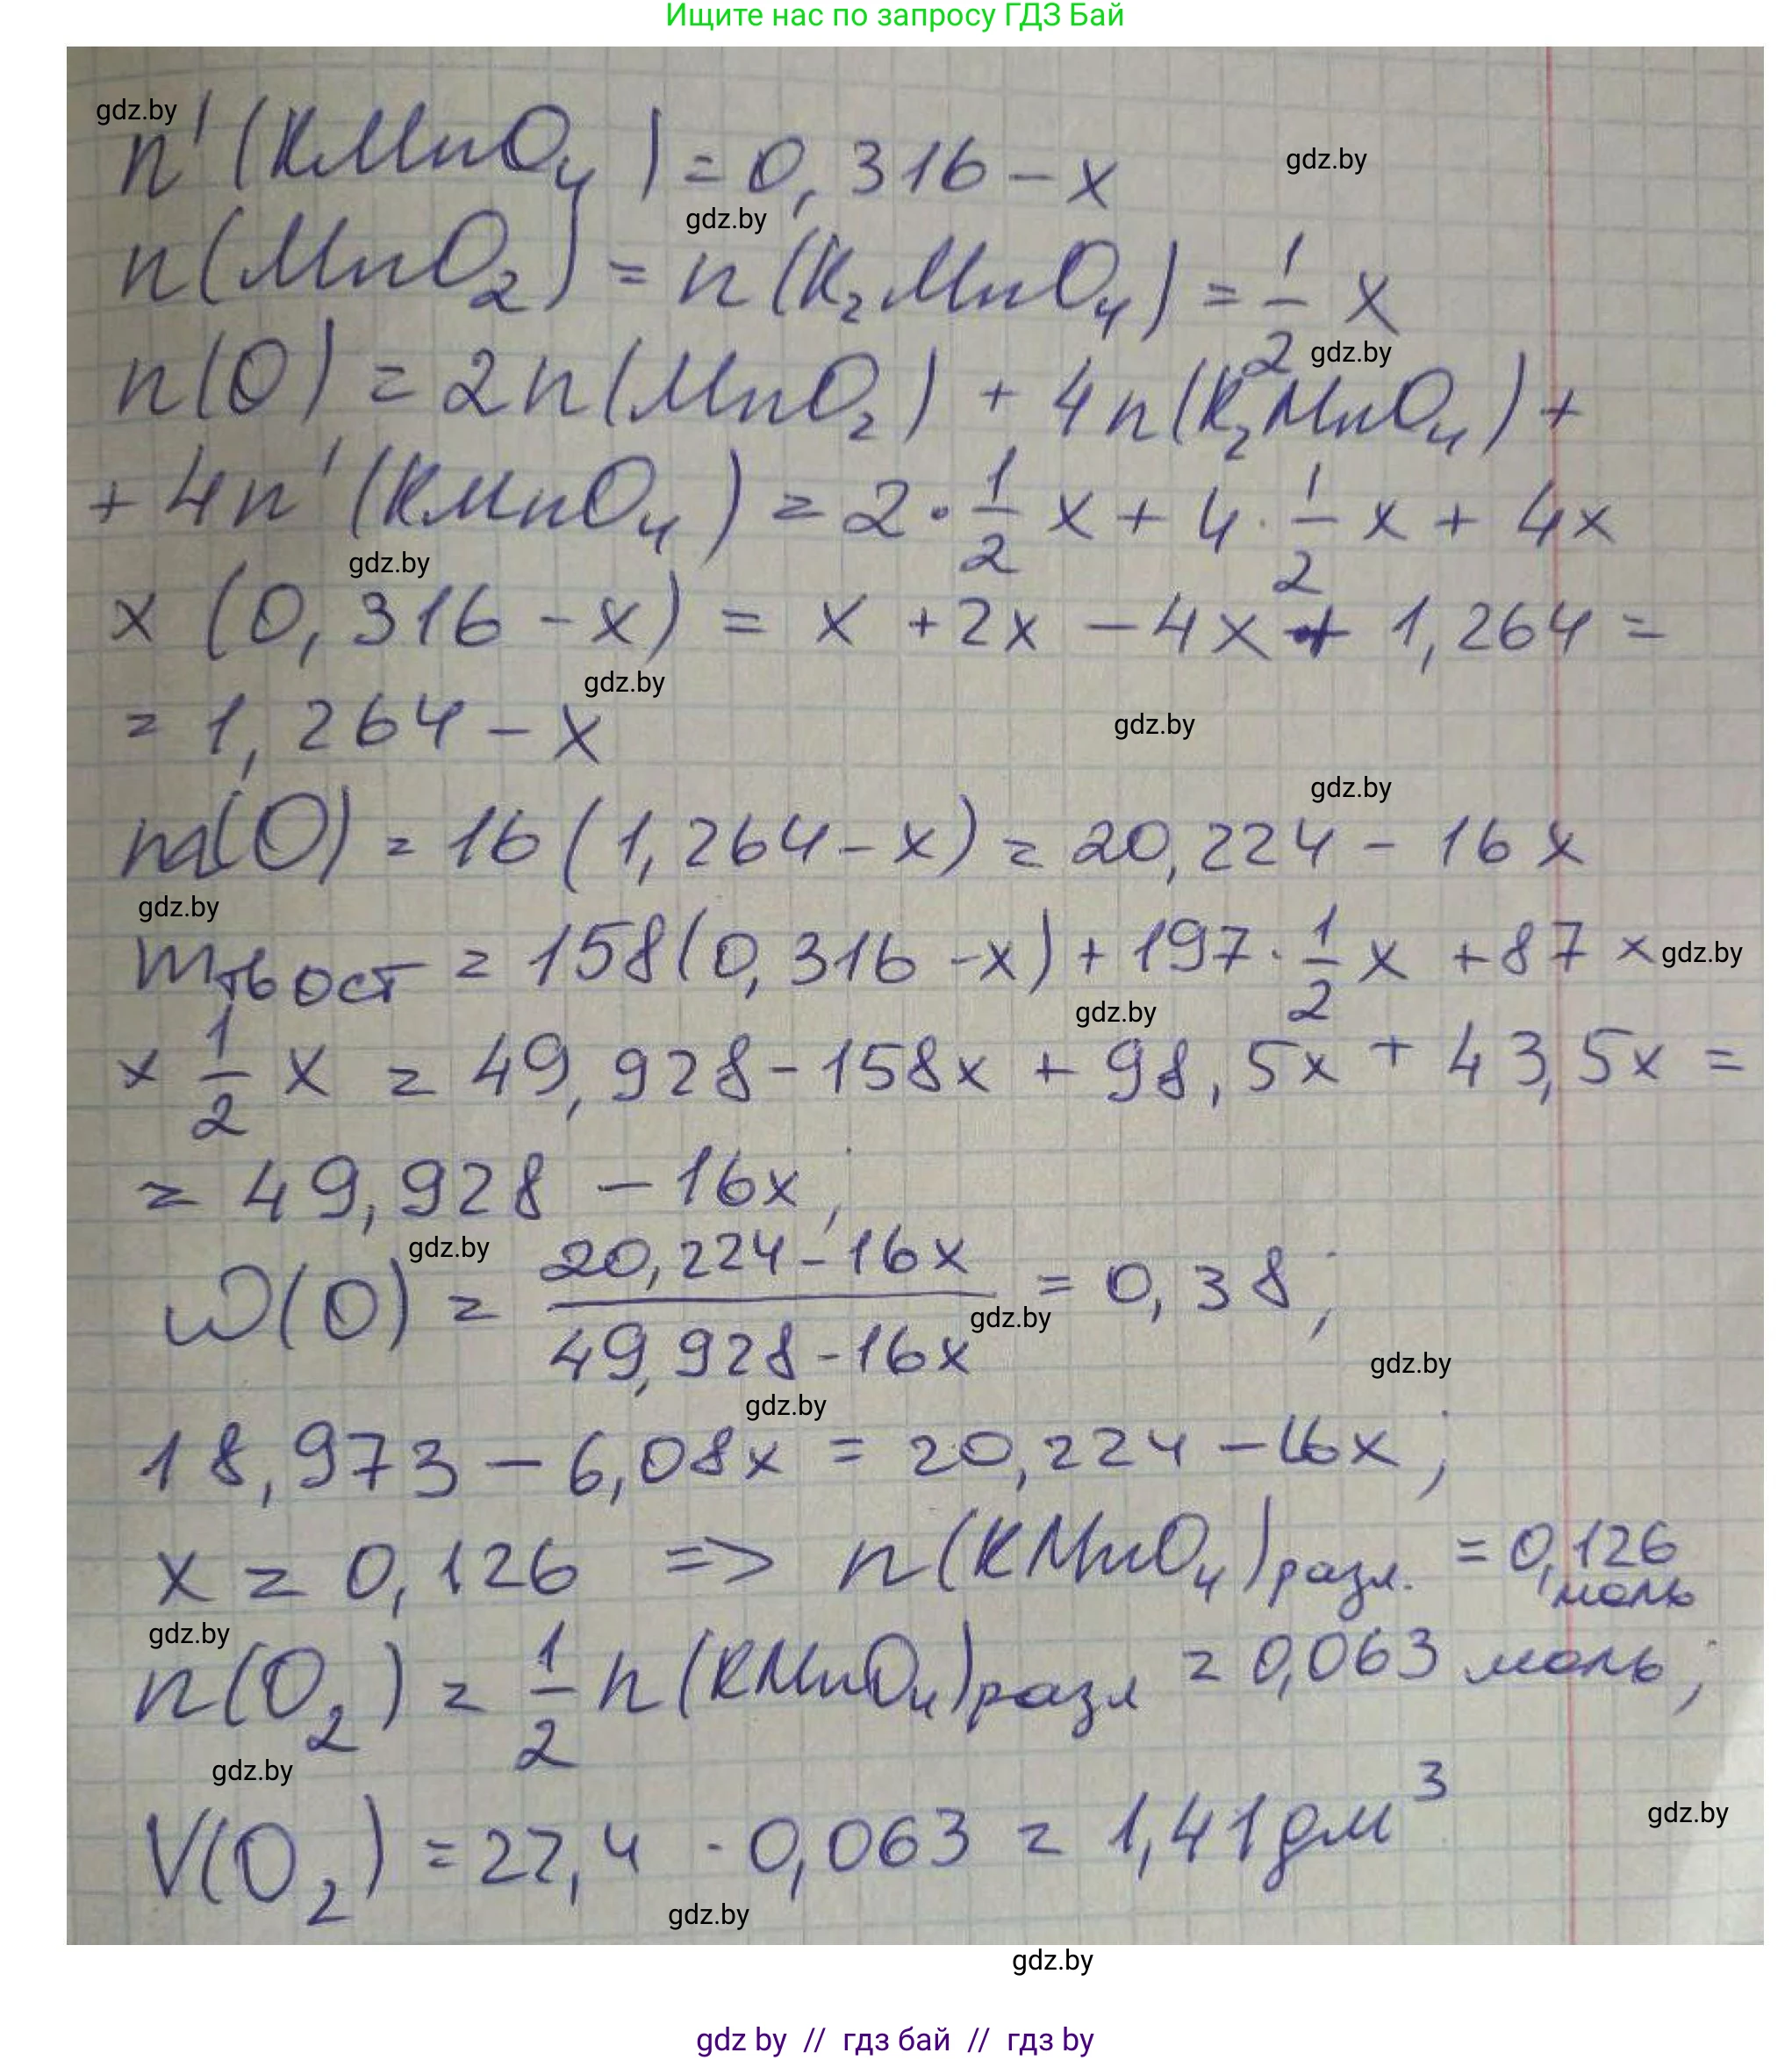 Ищите нас по запросу ГДЗ Бай
gdz.by
n'(KMnO₄) = 0,316 - x
gdz.by
gdz.by
n(MnO₂) = n(K₂MnO₄) = 1/2 x
gdz.by
n(O) = 2n(MnO₂) + 4n(K₂MnO₄) +
+ 4n'(KMnO₄) = 2 · 1/2 x + 4 · 1/2 x + 4x
gdz.by
x (0,316 - x) = x + 2x - 4x + 1,264 =
gdz.by
= 1,264 - x
gdz.by
gdz.by
m(O) = 16 (1,264 - x) = 20,224 - 16x
gdz.by
mтв ост = 158(0,316 - x) + 197 · 1/2 x + 87 x
gdz.by
gdz.by
x 1/2 x = 49,928 - 158x + 98,5x + 43,5x =
= 49,928 - 16x;
gdz.by
ω(O) = (20,224 - 16x)/(49,928 - 16x) = 0,38;
gdz.by
gdz.by
gdz.by
18,973 - 6,08x = 20,224 - 16x;
x = 0,126 => n(KMnO₄)разл. = 0,126 моль
gdz.by
n(O₂) = 1/2 n(KMnO₄)разл = 0,063 моль;
gdz.by
V(O₂) = 22,4 · 0,063 = 1,41 дм³
gdz.by
gdz.by
gdz.by
gdz by // гдз бай // гдз by